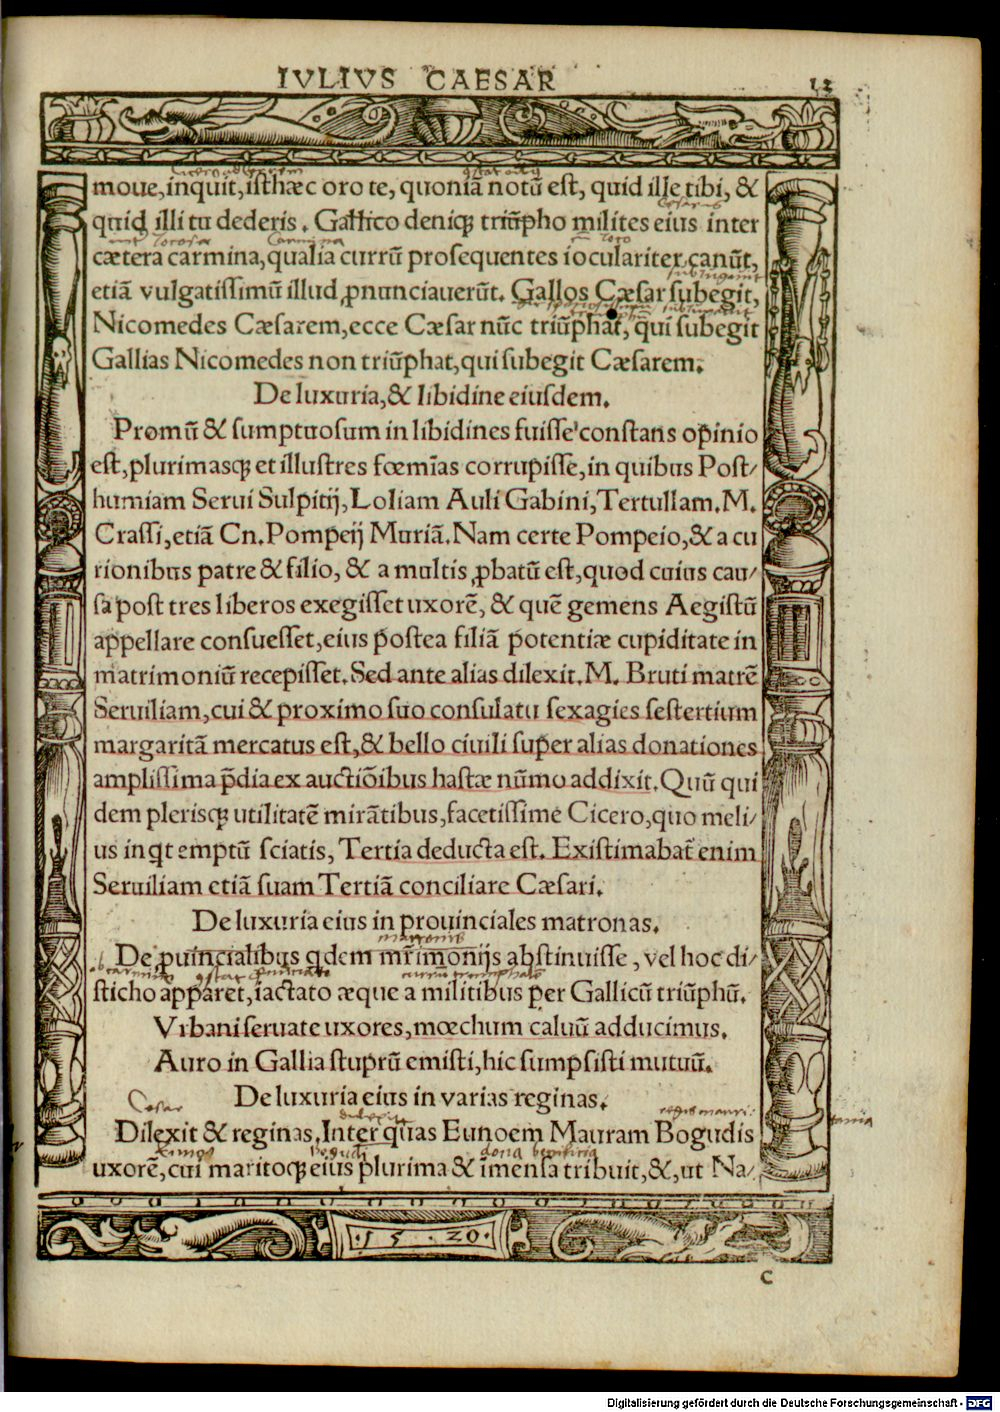 IVLIVS CAESAR 12
moue, inquit, isthæc oro te, quoniā notū est, quid ille tibi, &
quid illi tu dederis. Gallico deniqꝫ triūpho milites eius inter
cætera carmina, qualia currū prosequentes iocularitеr canūt,
etiā vulgatissimū illud ꝓnunciauerūt. Gallos Cæsar subegit,
Nicomedes Cæsarem, ecce Cæsar nūc triūphat, qui subegit
Gallias Nicomedes non triūphat, qui subegit Cæsarem.
De luxuria, & libidine eiusdem.
Promū & sumptuosum in libidines fuisse constans opinio
est, plurimasqꝫ et illustres fœmīas corrupisse, in quibus Post/
humiam Serui Sulpitij, Loliam Auli Gabini, Tertullam. M.
Crassi, etiā Cn. Pompeij Muriā. Nam certe Pompeio, & a cu
rionibus patre & filio, & a multis ꝓbatū est, quod cuius cau/
sa post tres liberos exegisset uxorē, & quē gemens Aegistū
appellare consuesset, eius postea filiā potentiæ cupiditate in
matrimoniū recepisset. Sed ante alias dilexit. M. Bruti matrē
Seruiliam, cui & proximo suo consulatu sexagies sestertium
margaritā mercatus est, & bello ciuili super alias donationes
amplissima p̄dia ex auctiōibus hastæ nūmo addixit. Quū qui
dem plerisqꝫ utilitatē mirātibus, facetissime Cicero, quo meli/
us inqt emptū sciatis, Tertia deducta est. Existimabat̄ enim
Seruiliam etiā suam Tertiā conciliare Cæsari.
De luxuria eius in prouinciales matronas.
matronis
De ꝓuincialibus qdem mr̄imonijs abstinuisse, vel hoc di/
sticho apparet, iactato æque a militibus per Gallicū triūphū.
Vrbani seruate uxores, mœchum caluū adducimus.
Auro in Gallia stuprū emisti, hic sumpsisti mutuū.
De luxuria eius in varias reginas.
Cesar dilexit regis mauri-
tania
Dilexit & reginas. Inter quas Eunoem Mauram Bogudis
uxorē, cui maritoqꝫ eius plurima & īmensa tribuit, &, ut Na/
·15·20·
C
Digitalisierung gefördert durch die Deutsche Forschungsgemeinschaft - DFG